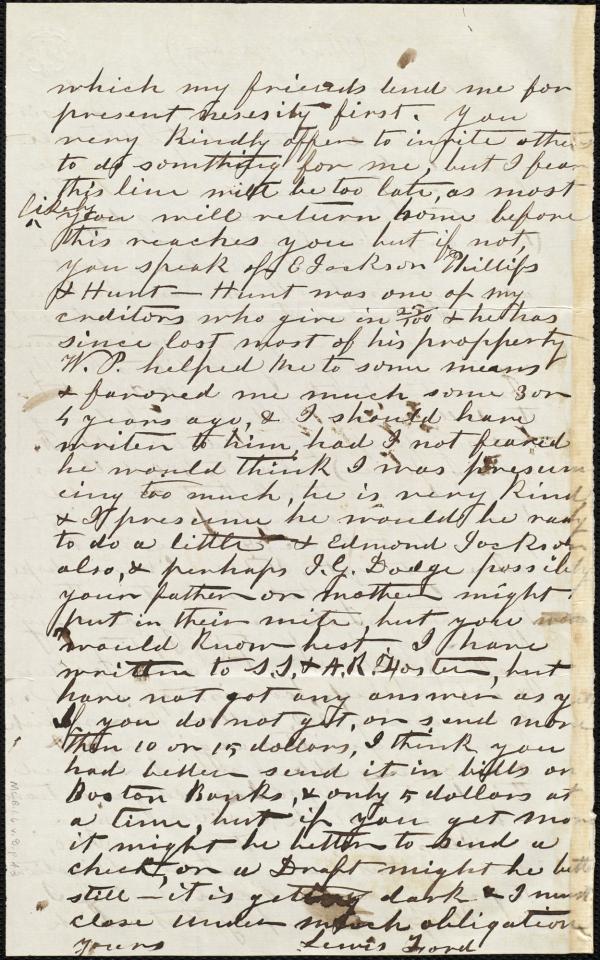 which my friends lend me for
present nesesity first. You
very Kindly offer to invite others
to do something for me, but I fear
this line will be too late, as most
likely
you will return home before
this reaches you but if not,
you speak of E Jackson Phillips
& Hunt — Hunt was one of my
creditors who give in 25/100 & he has
since lost most of his propperty
W. P. helped me to some means
& favored me much some 3 or
4 years ago, & I should have
writen to him, had I not feared
he would think I was presum
eing too much, he is very Kind
& I presume he would be ready
to do a little & Edmond Jackson
also, & perhaps J. G. Dodge possibly
your father or mother might
put in their mite, but you
would know best I have
written to S. S. & A. K. Foster, but
have not got any answer as y
If you do not get, or send more
then 10 or 15 dollars, I think you
had better send it in bills on
Boston Banks, & only 5 dollars at
a time, but if you get more
it might be better to send a
check, or a Draft might be bett
still — it is getting dark & I must
close under much obligation
yours Lewis Ford